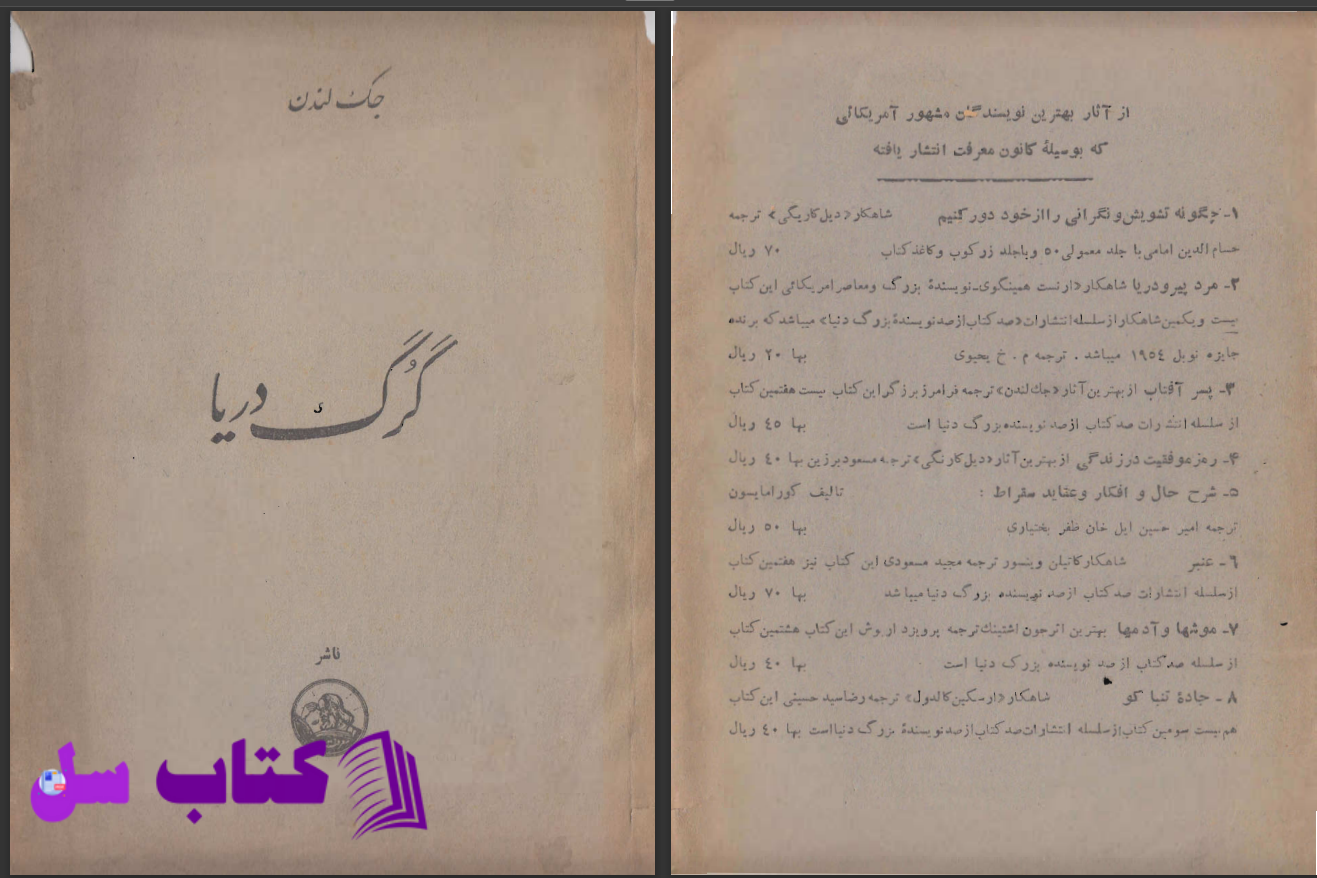 جک لندن
گرگ دریا
ناشر
کتاب سل
از آثار بهترین نویسندگان مشهور آمریکائی
که بوسیلهٔ کانون معرفت انتشار یافته
۱- چگونه تشویش و نگرانی را از خود دور کنیم شاهکار «دیل کاریگی» ترجمه
حسام الدین امامی با جلد معمولی ۵۰ و با جلد زرکوب و کاغذ کتاب ۷۰ ریال
۲- مرد پیر و دریا شاهکار «ارنست همینگوی» نویسندهٔ بزرگ و معاصر امریکائی این کتاب
بیست و یکمین شاهکار از سلسله انتشارات «صد کتاب از صد نویسندهٔ بزرگ دنیا» میباشد که برنده
جایزه نوبل ۱۹۵۴ میباشد . ترجمه م . خ یحیوی بها ۲۰ ریال
۳- پسر آفتاب از بهترین آثار «جك لندن» ترجمه فرامرز برزگر این کتاب بیست هفتمین کتاب
از سلسله انتشارات صد کتاب از صد نویسنده بزرگ دنیا است بها ٤٥ ریال
۴- رمز موفقیت در زندگی از بهترین آثار «دیل کارنگی» ترجمه مسعود برزین بها ٤٠ ریال
۵- شرح حال و افکار و عقاید سقراط : تالیف کورامایسون
ترجمه امیر حسین ایل خان ظفر بختیاری بها ٥٠ ریال
٦- عنبر شاهکار کاتیلن وینسور ترجمه مجید مسعودی این کتاب نیز هفتمین کتاب
از سلسله انتشارات صد کتاب از صد نویسنده بزرگ دنیا میباشد بها ۷۰ ریال
۷- موشها و آدمها بهترین اثر جون اشتینك ترجمه پرویز داریوش این کتاب هشتمین کتاب
از سلسله صد کتاب از صد نویسنده بزرگ دنیا است بها ٤٠ ریال
۸- جادهٔ تنباکو شاهکار «ارسکین کالدول» ترجمه رضا سید حسینی این کتاب
هم بیست سومین کتاب از سلسله انتشارات صد کتاب از صد نویسندهٔ بزرگ دنیا است بها ٤٠ ریال